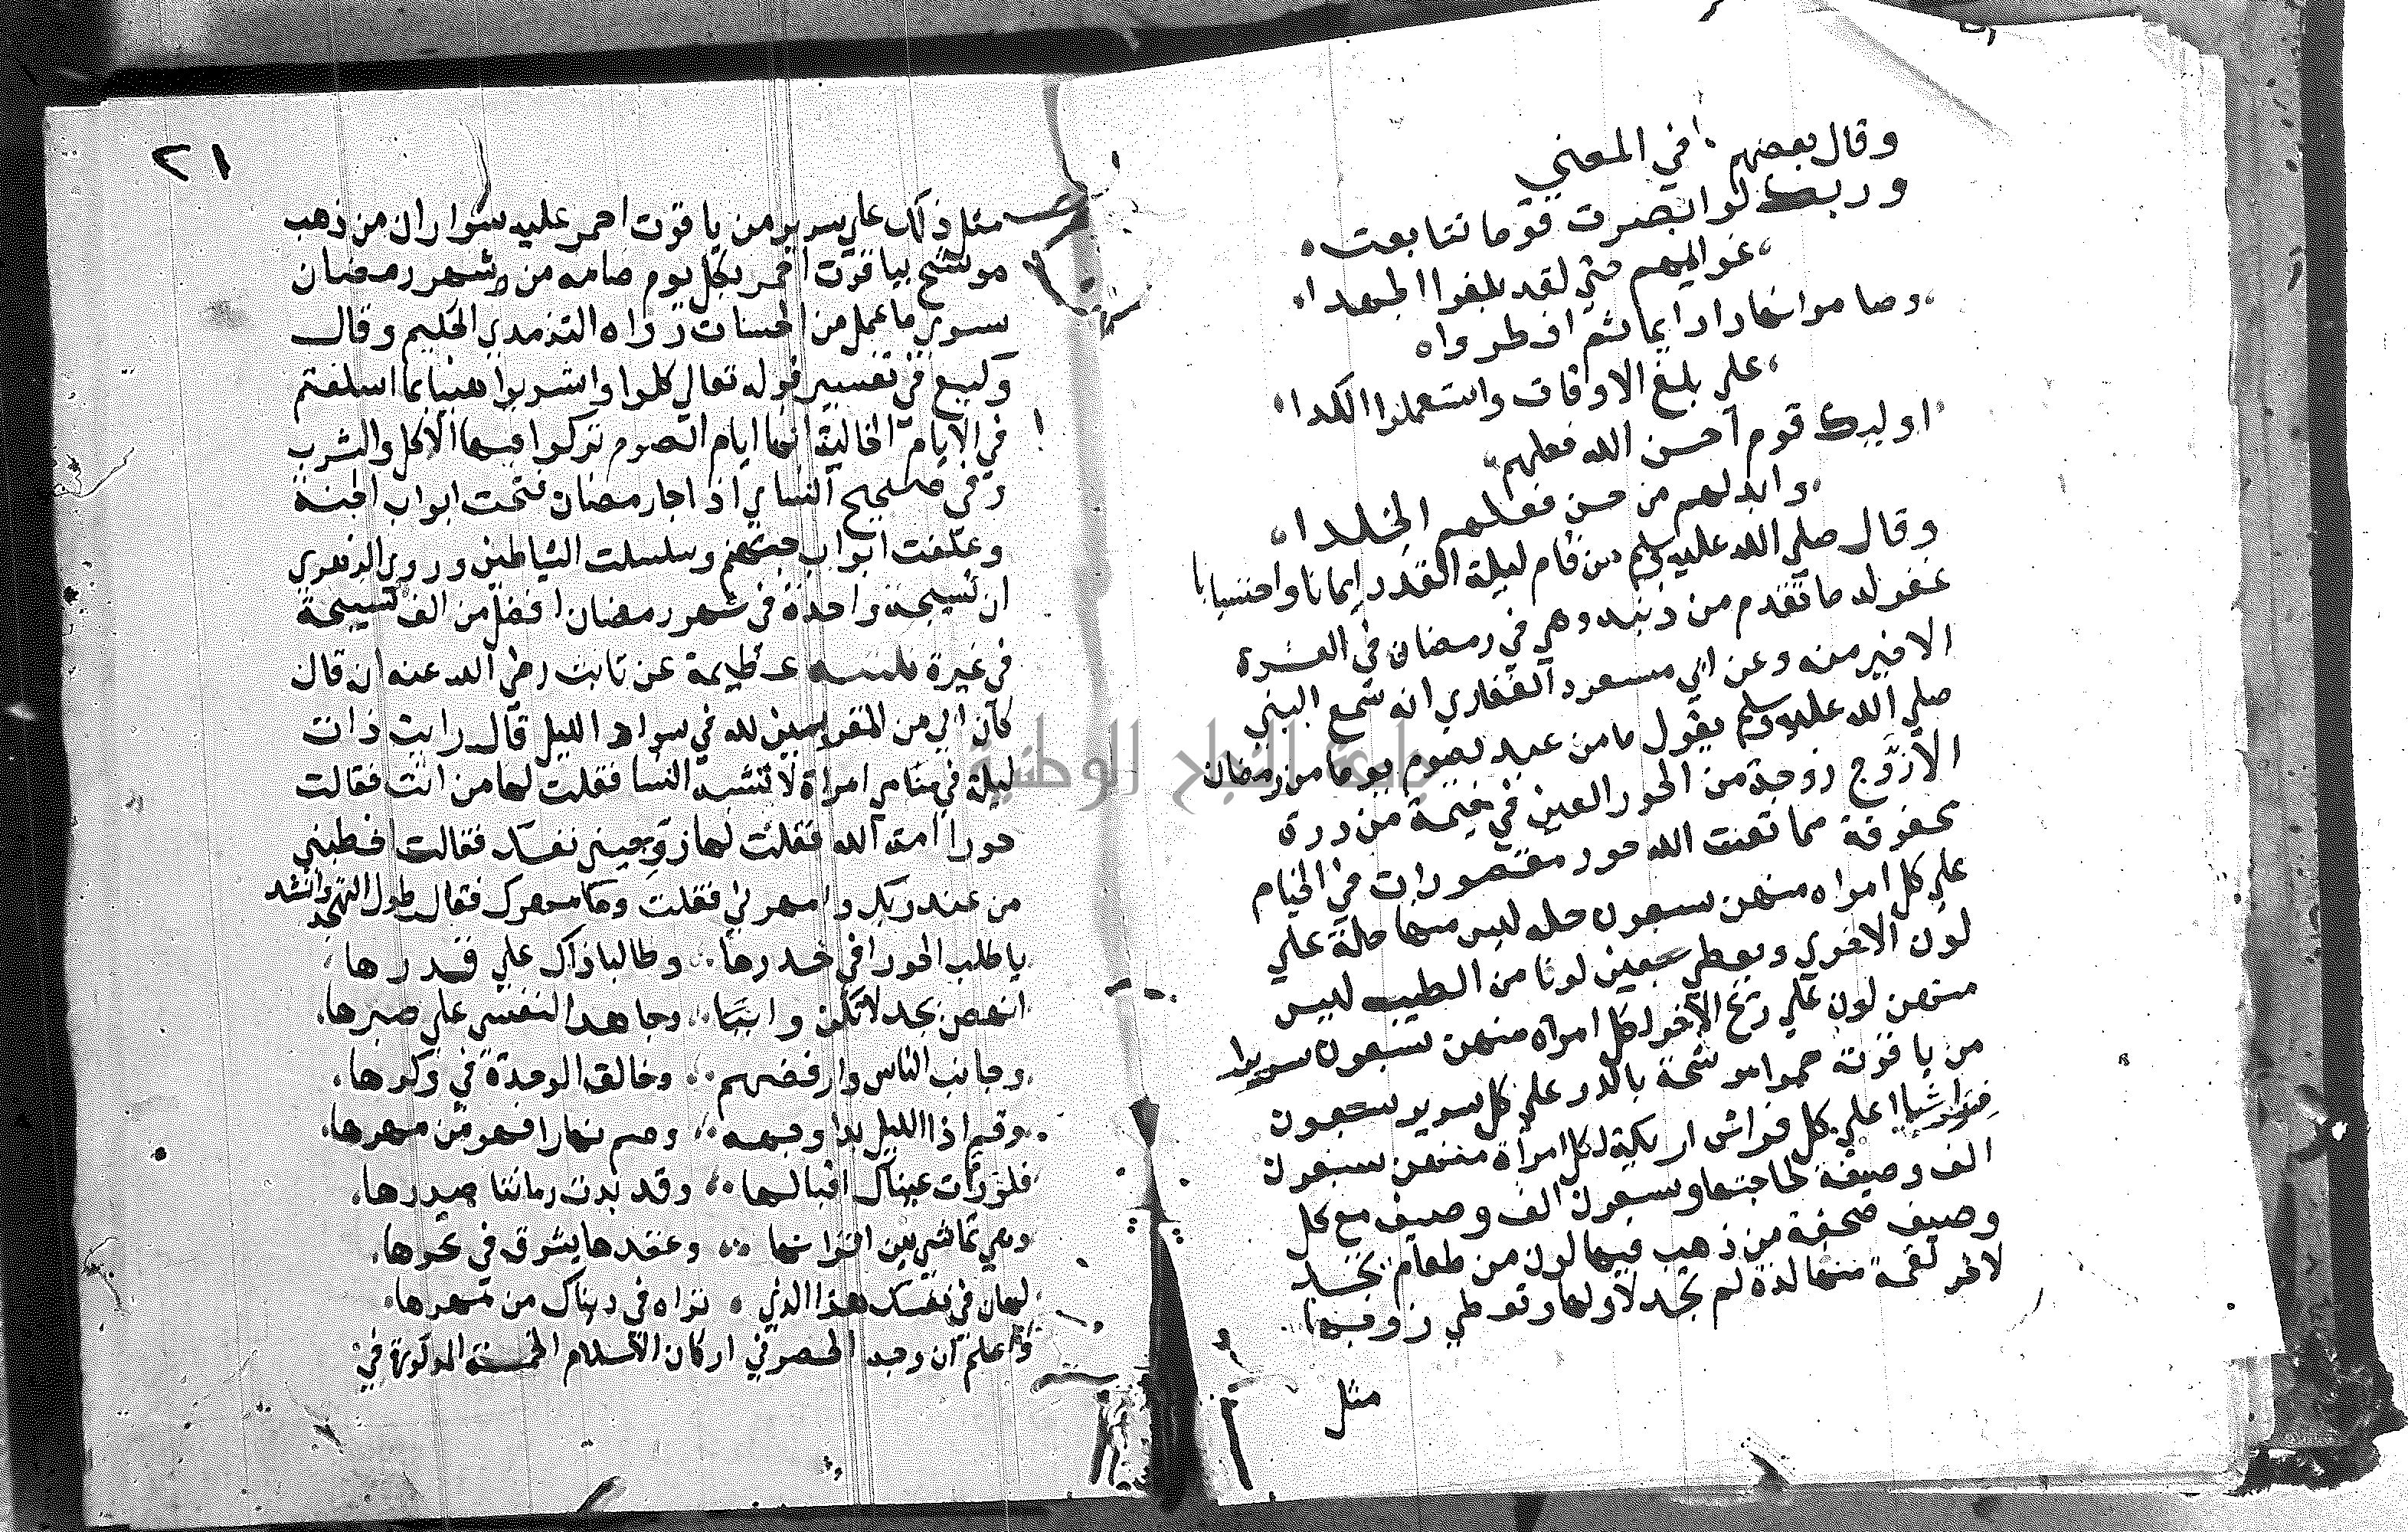 وقال بعضهم في المعني
وربك لو ابصرت قوما تتابعت
عزايمهم حتي لقد بلغوا الجهدا
وصاموا نهارا دايما ثم افطروا
علي بلغ الاوقات واستعملوا الكدا
اوليك قوم احسن الله فعلهم
وابدلهم من حسن فعلهم الخلدا
وقال صلي الله عليه وسلم من قام ليلة القدر ايمانا واحتسابا
غفر له ما تقدم من ذنبه وهي في رمضان في العشرة
الاخير منه وعن ابي مسعود الغفاري انه سمع النبي
صلي الله عليه وسلم يقول ما من عبد يصوم يوما من رمضان
الا زوج زوجة من الحور العين في خيمة من درة
مجوفة مما نعت الله حور مقصورات في الخيام
علي كل امراه منهن سبعون حله ليس منها حلة علي
لون الاخري ويعطي سبعين لونا من الطيب ليس
منهن لون علي ريح الاخر لكل امراه منهن سبعون سريرا
من ياقوتة حمرا موشحة بالدر علي كل سرير سبعون
فراشا علي كل فراش اريكة لكل امراة منهن سبعون
الف وصيفة لحاجتها وسبعون الف وصيف مع كل
وصيف صحفة من ذهب فيها لون من طعام يجد
لاخر لقمة منها لذة لم يجد لاولها وتعطي زوجها
مثل
٢١
مثل ذلك علي سرير من ياقوت احمر عليه سواران من ذهب
موشح بياقوت احمر بكل يوم صامه من شهر رمضان
سوي ما عمل من الحسنات رواه الترمدي الحكيم وقال
وكيع في تفسير قوله تعالي كلوا واشربوا هنيا بما اسلفتم
في الايام الخالية انها ايام الصوم تركوا فيها الاكل والشرب
وفي صحيح النساي اذا جا رمضان فتحت ابواب الجنة
وغلقت ابواب جهنم وسلسلت الشياطين وروي الزهري
ان تسبيحة واحدة في شهر رمضان افضل من الف تسبيحة
في غيره عظيمة عن ثابت رضي الله عنه ان قال
كان ابي من القوامين لله في سواد الليل قال رايت ذات
ليلة في منامي امراة لا تشبه النسا فقلت لها من انت فقالت
حورا امة الله فقلت لها زوجيني نفسك فقالت اخطبني
من عند ربك وامهرني فقلت وما مهرك فقال طول التهجد وانشد
يا طلب الحورا في خدرها وطالبا ذاك علي قدرها
انهض بجد لا تكن وانيا وجاهد النفس علي صبرها
وجانب الناس وارفضهم وخالق الوحدة في وكرها
وقم اذا الليل بدا وجهه وصم نهارا فهو من مهرها
فلو رات عيناك اقبالها وقد بدت رمانتا صدرها
وهي تماشي بين اترابها وعقدها يشرق في نحرها
لهان في نفسك هذا الذي تراه في دنياك من زهرها
واعلم ان وجه الحصر في اركان الاسلام الخمسة المذكورة في
جامعة النجاح الوطنية